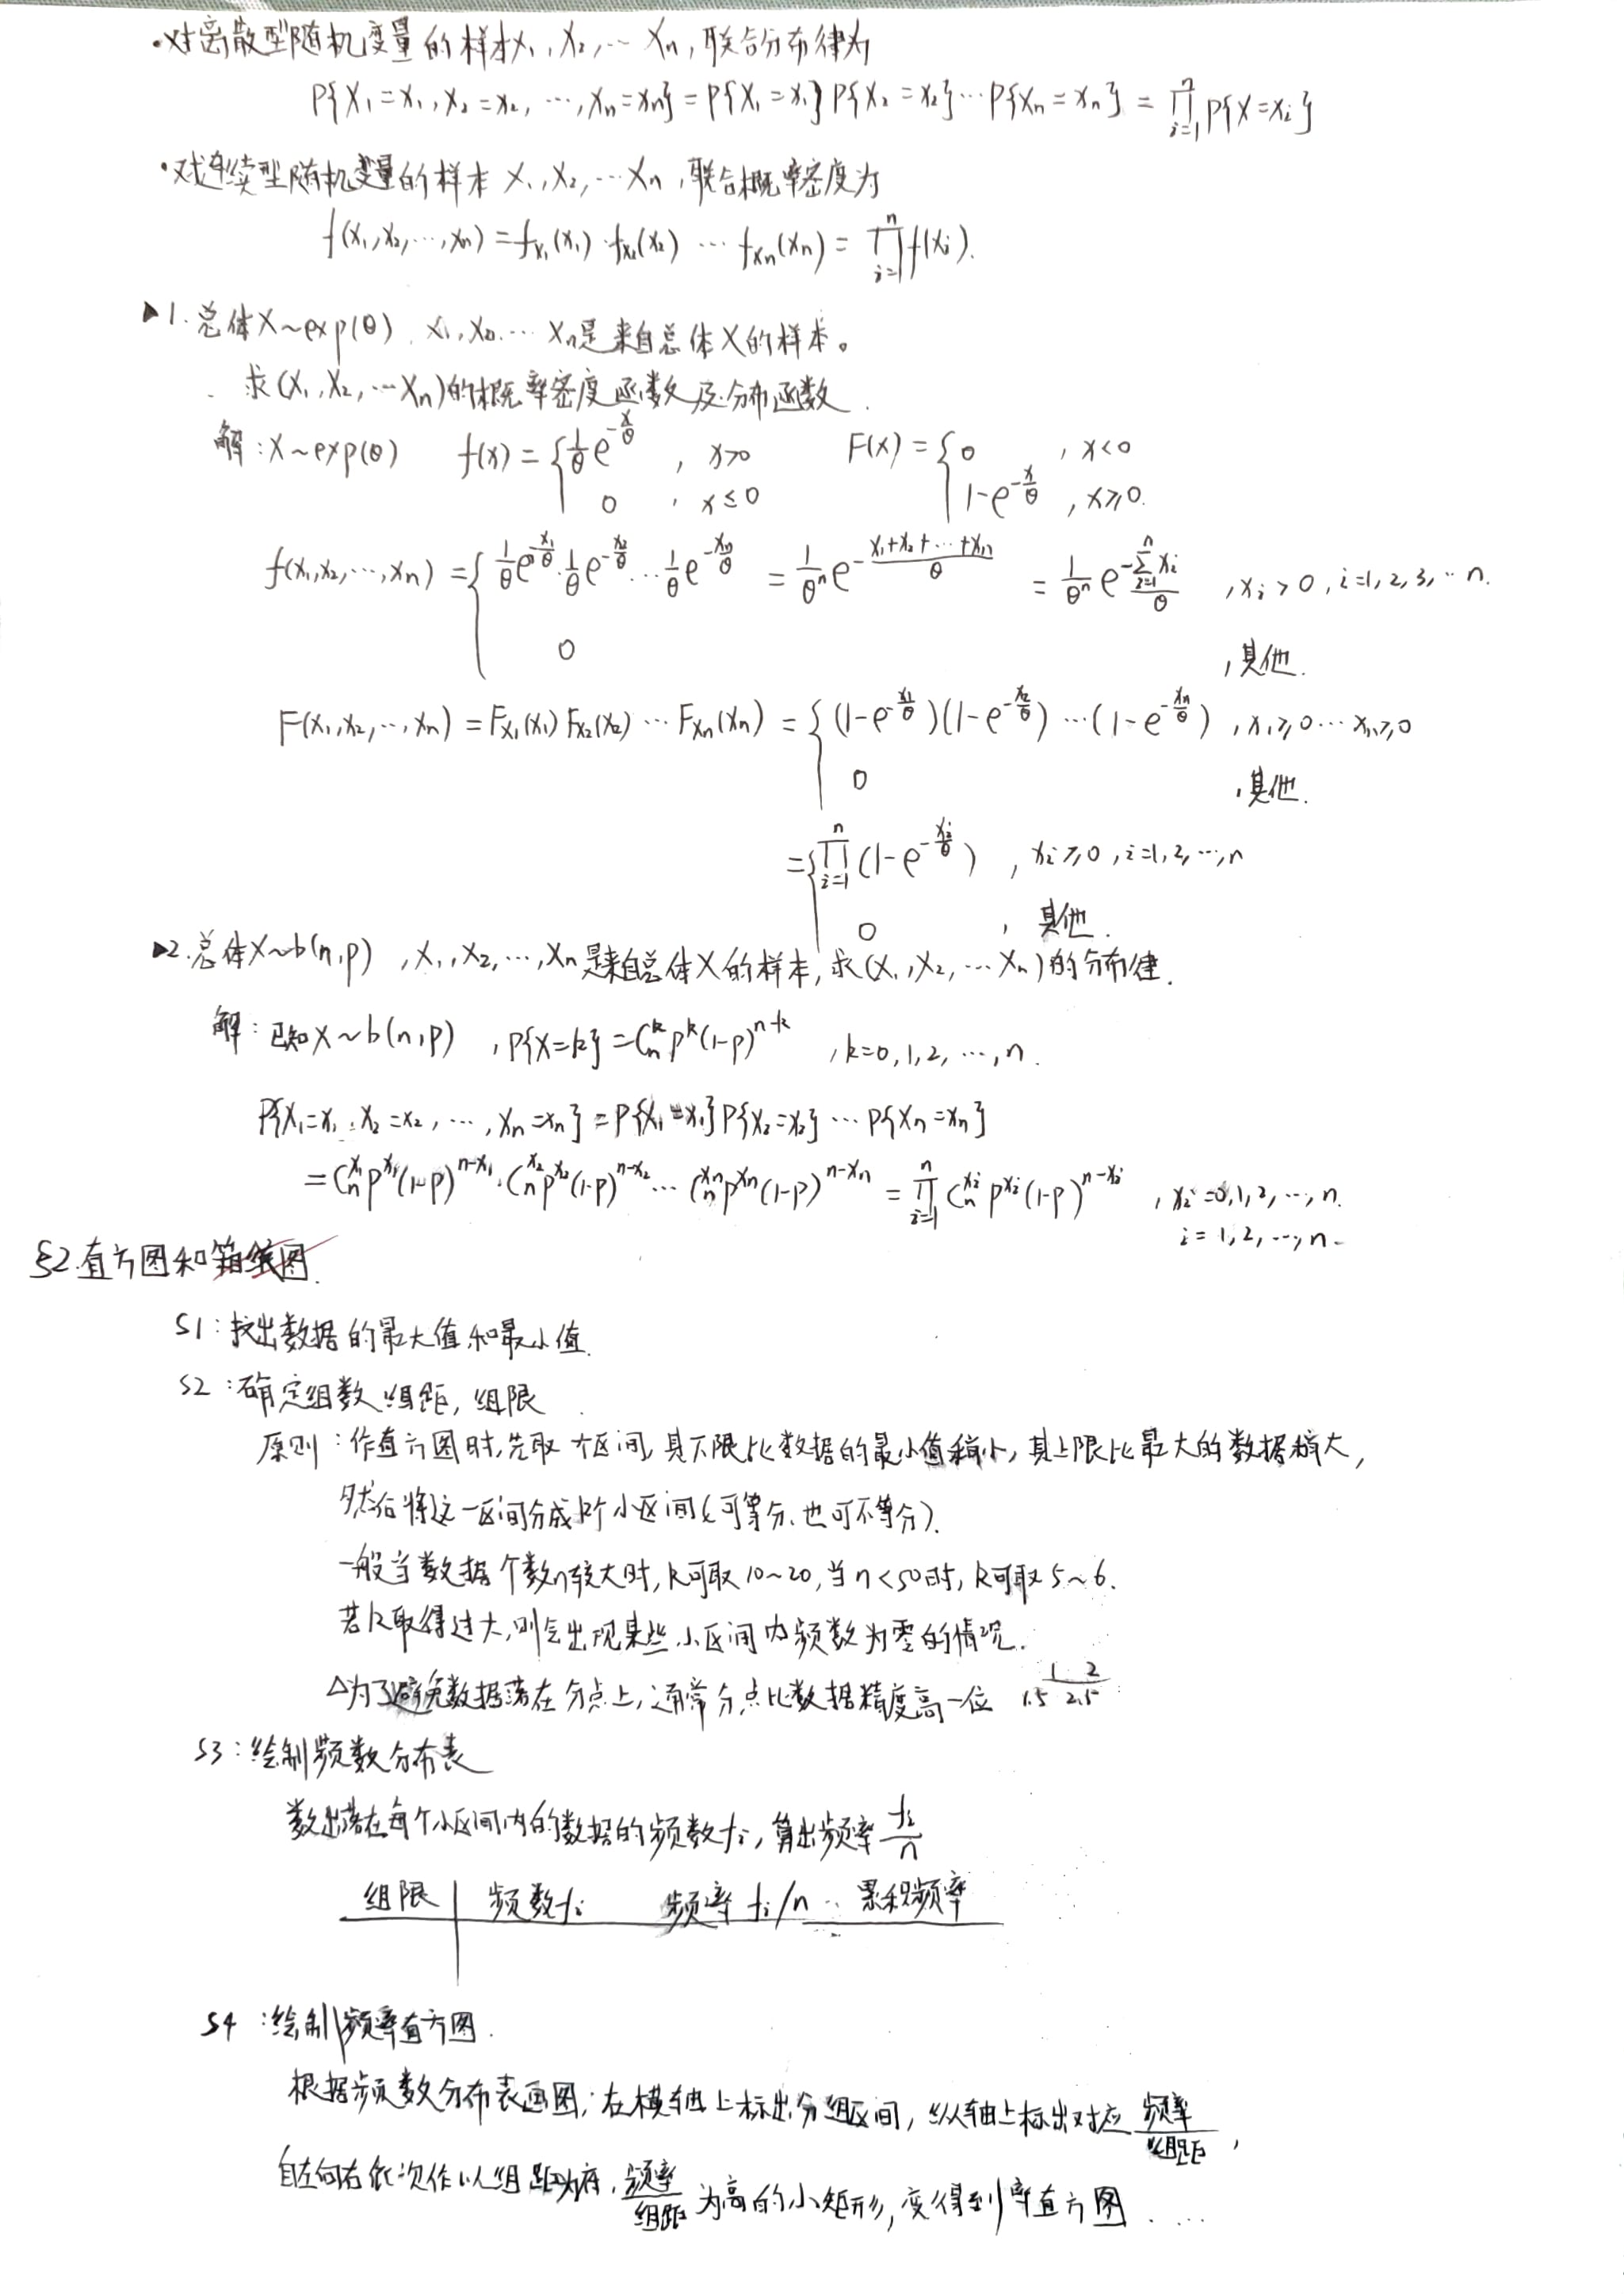 ·对离散型随机变量的样本X₁,X₂,…Xₙ,联合分布律为
P{X₁=x₁,X₂=x₂,…,Xₙ=xₙ}=P{X₁=x₁}P{X₂=x₂}…P{Xₙ=xₙ}=∏ⁿᵢ₌₁P{X=xᵢ}
·对连续型随机变量的样本X₁,X₂,…Xₙ,联合概率密度为
f(x₁,x₂,…,xₙ)=f_X₁(x₁)·f_X₂(x₂)…f_Xₙ(xₙ)=∏ⁿᵢ₌₁f(xᵢ).
▶1.总体X~exp(θ),X₁,X₂,…Xₙ是来自总体X的样本。
求(X₁,X₂,…Xₙ)的概率密度函数及分布函数.
解:X~exp(θ) f(x)={1/θ e^(-x/θ), x>0 F(x)={0, x<0
0, x≤0 1-e^(-x/θ), x≥0.
f(x₁,x₂,…,xₙ)={1/θ e^(-x₁/θ)·1/θ e^(-x₂/θ)…1/θ e^(-xₙ/θ)=1/θⁿ e^(-(x₁+x₂+…+xₙ)/θ)=1/θⁿ e^(-∑ⁿᵢ₌₁xᵢ/θ) ,xᵢ>0,i=1,2,3,…n.
0 ,其他.
F(x₁,x₂,…,xₙ)=F_X₁(x₁)F_X₂(x₂)…F_Xₙ(xₙ)={(1-e^(-x₁/θ))(1-e^(-x₂/θ))…(1-e^(-xₙ/θ)),x₁≥0…xₙ≥0
0 ,其他.
={∏ⁿᵢ₌₁(1-e^(-xᵢ/θ)) ,xᵢ≥0,i=1,2,…,n
0 ,其他.
▶2.总体X~b(n,p),X₁,X₂,…,Xₙ是来自总体X的样本,求(X₁,X₂,…Xₙ)的分布律.
解:已知X~b(n,p),P{X=k}=Cₙᵏpᵏ(1-p)ⁿ⁻ᵏ,k=0,1,2,…,n.
P{X₁=x₁,X₂=x₂,…,Xₙ=xₙ}=P{X₁=x₁}P{X₂=x₂}…P{Xₙ=xₙ}
=Cₙ^x₁ p^x₁(1-p)^(n-x₁)·Cₙ^x₂ p^x₂(1-p)^(n-x₂)…Cₙ^xₙ p^xₙ(1-p)^(n-xₙ)=∏ⁿᵢ₌₁Cₙ^xᵢ p^xᵢ(1-p)^(n-xᵢ) ,xᵢ=0,1,2,…,n.
i=1,2,…,n.
§2.直方图和箱线图.
S1:找出数据的最大值和最小值.
S2:确定组数,组距,组限.
原则:作直方图时,先取一个区间,其下限比数据的最小值稍小,其上限比最大的数据稍大,
然后将这一区间分成k个小区间(可等分、也可不等分).
一般当数据个数n较大时,k可取10~20,当n<50时,k可取5~6.
若k取得过大,则会出现某些小区间内频数为零的情况.
△为了避免数据落在分点上,通常分点比数据精度高一位 1 2
1.5 2.5
S3:绘制频数分布表
数出落在每个小区间内的数据的频数fᵢ,算出频率fᵢ/n
组限 频数fᵢ 频率fᵢ/n 累积频率
S4:绘制频率直方图.
根据频数分布表画图:在横轴上标出分组区间,纵轴上标出对应频率/组距,
自左向右依次作以组距为底,频率/组距为高的小矩形,变得到率直方图....